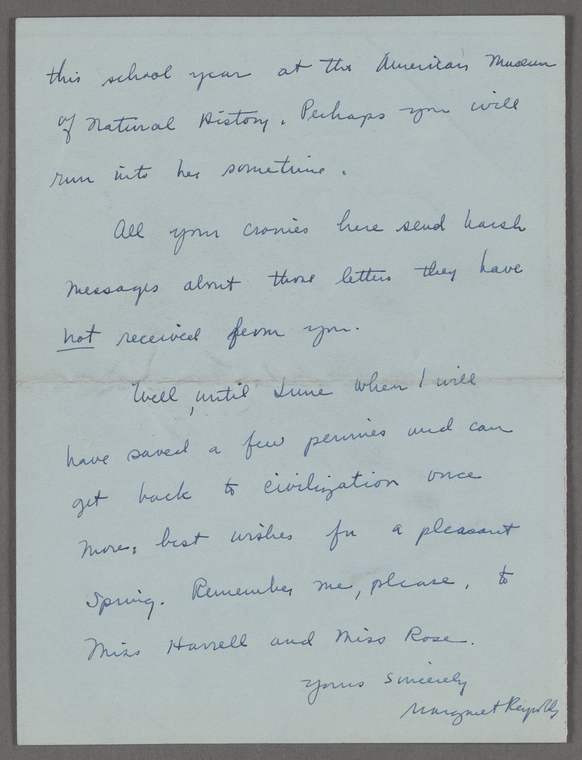 this school year at the American Museum
of Natural History. Perhaps you will
run into her sometime.
All your cronies here send harsh
messages about those letters they have
not received from you.
Well, until June when I will
have saved a few pennies and can
get back to civilization once
more, best wishes for a pleasant
Spring. Remember me, please, to
Miss Harrell and Miss Rose.
Yours Sincerely
Margaret Reynolds